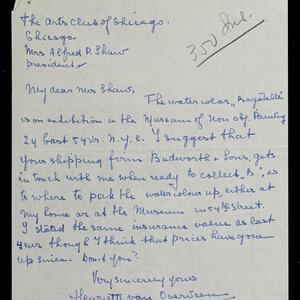 The Arts Club of Chicago.
Chicago.
Mrs Alfred P. Shaw
president.
350 Ins.
My dear Mrs Shaw,
The water color „Bagatelle"
is on exhibition in the Museum of Non Obj. Painting
24 East 54 str. N.Y.C. I suggest that
your shipping firm Budworth & Sons, gets
in touch with me when ready to collect "B", as
to where to pick the water colour up, either at
my home or at the Museum in 54th Street.
I stated the same insurance value as last
year though I think that prices have gone
up since. Don't you?
Very sincerely yours
Henriette van